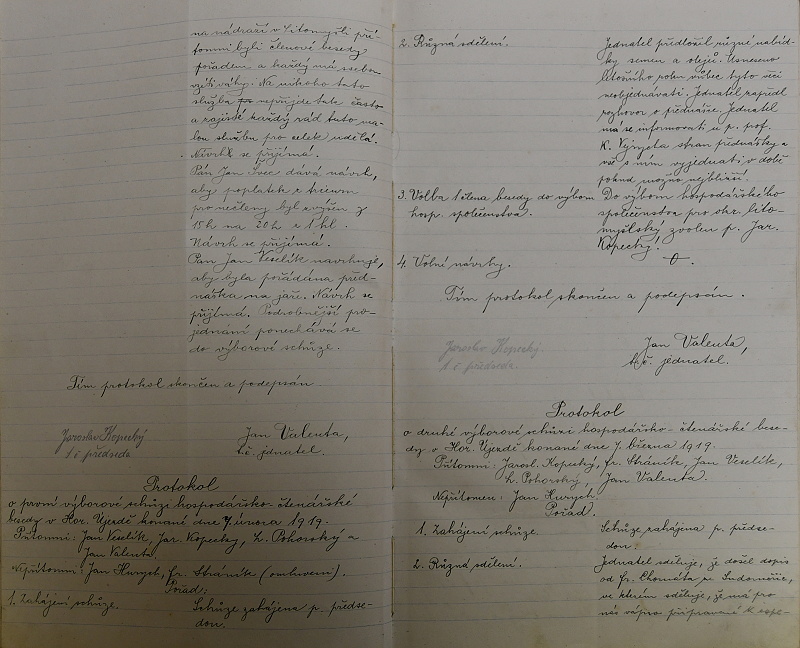 na nádraží v Litomyšli pří-
tomni byli členové besedy
pořadem a každý má s sebou
vzíti váhy. Na nikoho tato
služba nepřijde tak často
a zajisté každý rád tuto ma-
lou službu pro celek udělá.
Návrh se přijímá.
Pan Jan Švec dává návrh,
aby poplatek z
pro nečleny byl zvýšen z
15h na 20h z 1 hl.
Návrh se přijímá.
Pan Jan Veselík navrhuje,
aby byla pořádána před-
náška na jaře. Návrh se
přijímá. Podrobnější pro-
jednání ponechává se
do výborové schůze.
Tím protokol skončen a podepsán
Jaroslav Kopecký
t č předseda
Jan Valenta,
t.č. jednatel.
Protokol
o první výborové schůze hospodářsko-čtenářské
besedy v Hor. Újezdě konané dne 7 února 1919.
Přítomni: Jan Veselík, Jar. Kopecký, L. Pohorský a
Jan Valenta
Nepřítomni: Jan Hurych, fr. Stráník (omluveni).
Pořad:
1. Zahájení schůze.
Schůze zahájena p. předse-
dou.
2. Různá sdělení.
Jednatel předložil různé nabíd-
ky semen a olejů. Usneseno
letošního roku vůbec tyto věci
neobjednávati. Jednatel zapředl
rozhovor o přednášce. Jednatel
má se informovati u p. prof.
K. Vyzyeta stran přednášky a
vše s ním vyjednati v době
pokud možno nejbližší.
3. Volba 1 člena besedy do výboru
hosp. společenstva.
Do výboru hospodářského
společenstva pro okr. lito-
myšlský zvolen p. Jar.
Kopecký.
4. Volní návrhy.
Tím protokol skončen a podepsán.
Jaroslav Kopecký.
t. č. předseda.
Jan Valenta,
t.č. jednatel.
Protokol
o druhé výborové schůzi hospodářsko-čtenářské bese-
dy v Hor. Újezdě konané dne 7. března 1919.
Přítomni: Jarosl. Kopecký, fr. Stráník, Jan Veselík,
L. Pohorský, Jan Valenta.
Nepřítomen: Jan Hurych.
Pořad.
1. Zahájení schůze.
Schůze zahájena p. předse-
dou.
2. Různá sdělení.
Jednatel sděluje, že došel dopis
od fr. Chouěta ze
ve kterém sděluje, že má pro
nás vápno připravené k